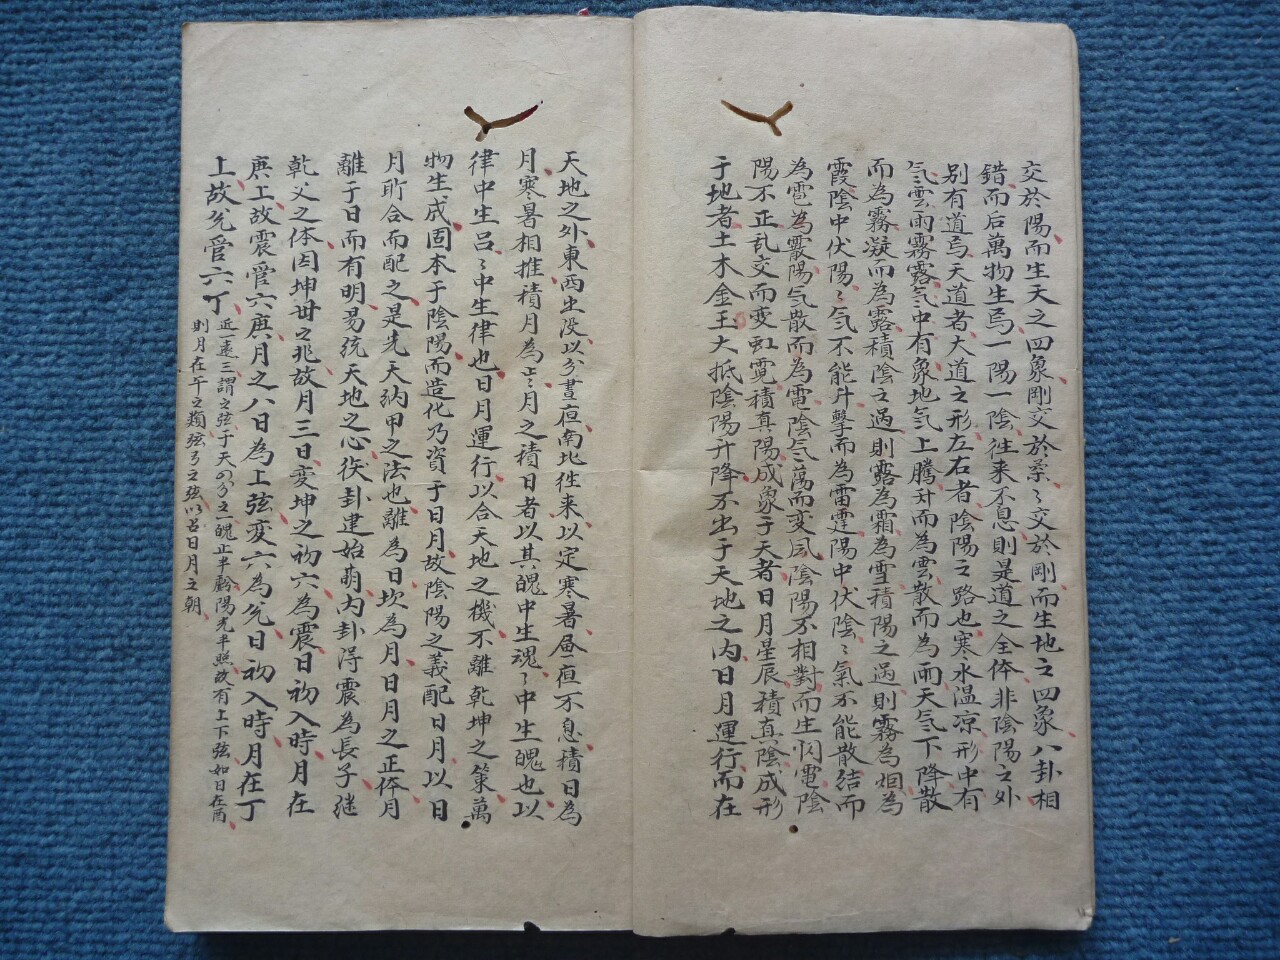 交於陽而生天之四象剛交於柔〻交於剛而生地之四象八卦相
錯而后萬物生焉一陽一陰徃来不息則是道之全体非陰陽之外
别有道焉天道者大道之形左右者陰陽之路也寒水温凉形中有
气雲雨霧露气中有象地气上騰升而為雲散而為雨天气下降散
而為霧凝而為露積陰之過則露為霜為雪積陽之過則霧為烟為
霞陰中伏陽〻气不能升擊而為雷霆陽中伏陰〻氣不能散結而
為雹為霰陽气散而為電陰气蕩而变风陰陽不相對而生闪電陰
陽不正乱交而变虹霓積真陽成象于天者日月星辰積真陰成形
于地者土木金玉大抵陰陽升降不出于天地之内日月運行而在
天地之外東西出没以分晝夜南北徃来以定寒暑昼夜不息積日為
月寒暑相推積月為嵗〻月之積日者以其魄中生魂〻中生魄也以
律中生吕〻中生律也日月運行以合天地之機不離乾坤之策萬
物生成固本于陰陽而造化乃資于日月故陰陽之義配日月以日
月所合而配之是先天纳甲之法也離為日坎為月日月之正体月
離于日而有明易统天地之心後卦建始萌内卦得震為長子继
乾父之体因坤毋之兆故月三日変坤之初六為震日初入時月在
庚上故震管六庚月之八日為上弦变六為兊日初入時月在丁
上故兊管六丁
近一遠三謂之弦于天分之一魄正半虧陽光半照故有上下弦如日在酉
則月在午之類弦弓之弦以占日月之朝